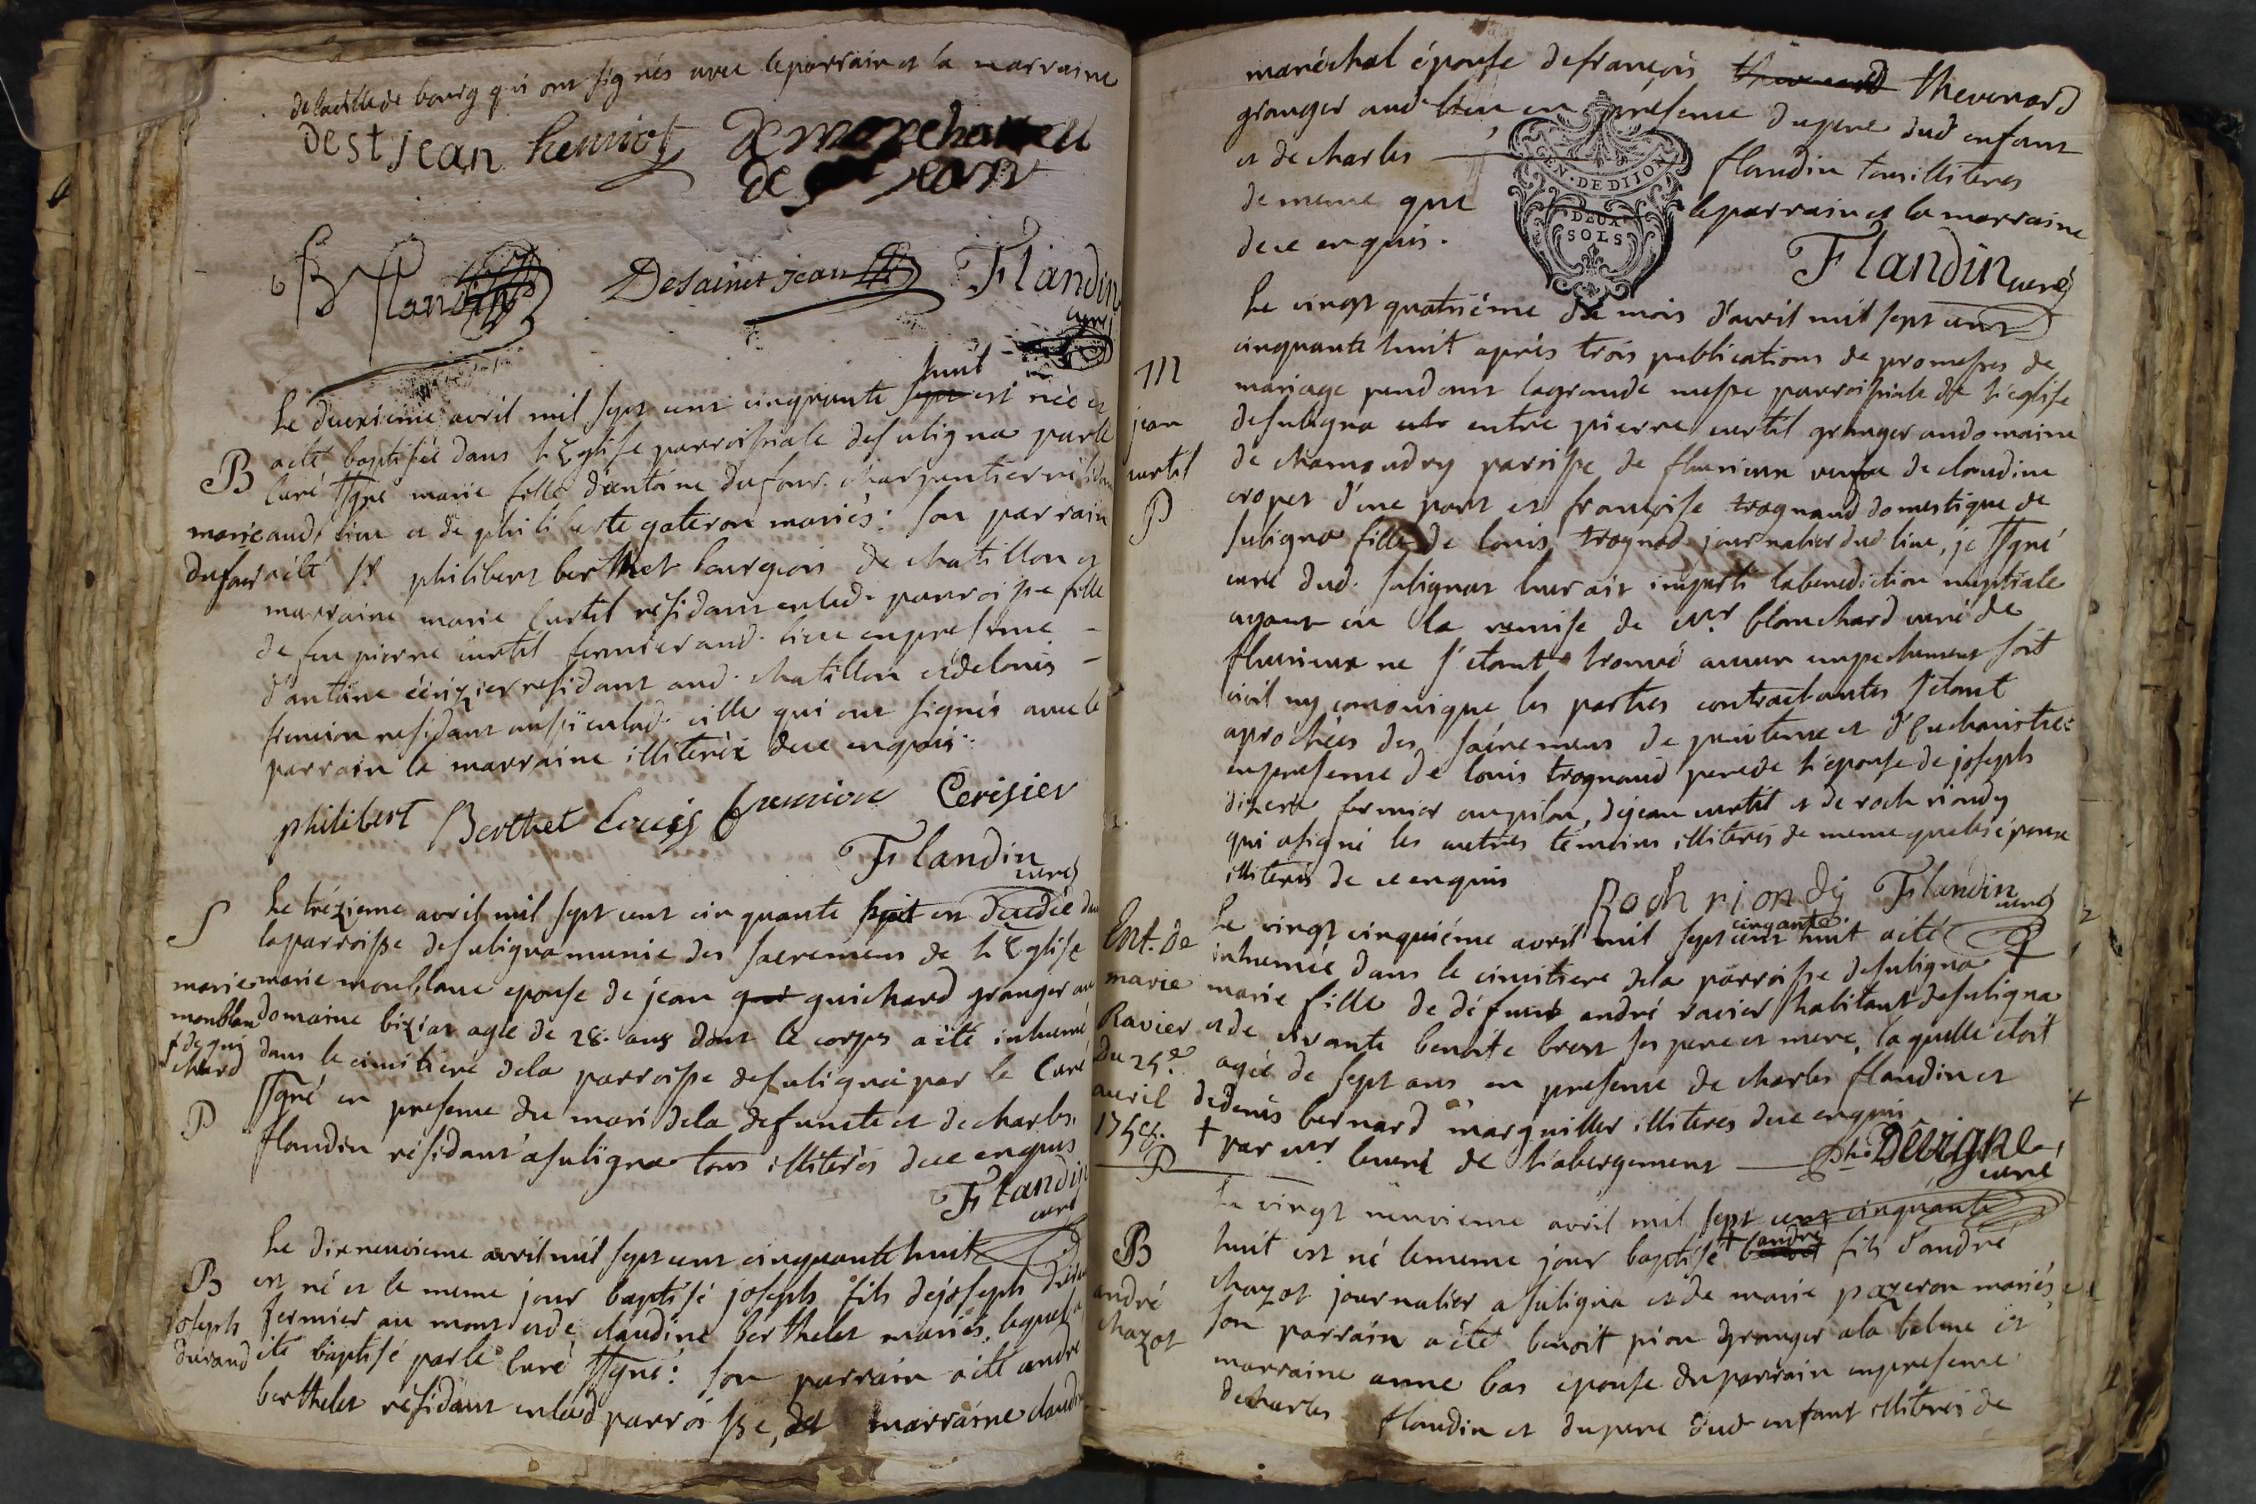 de la ville de bourg qui ont signés avec le parrain et la marraine
De st jean henriot De marchan
de jean
B flandin Desainct jean Flandin
curé
huit
Le deuxieme avril mil sept cent cinquante sept est née et
B a été baptisée dans l'Eglise parroissiale de suligna par le
curé ssgné marie fille d'antoine dufour charpentier
marie aud. lieu et de philiberte gateron mariés : son parrain
dufour a été Sr philibert berthet bourgeois de chatillon et
marraine marie Curtil résidant en lad. parroisse fille
de feu pierre curtil fermier aud. lieu en presence
d'antoine cerizier residant aud. chatillon et de louis
frenion residant aussi en lad. ville qui ont signés avec le
parrain la marraine illiterée de ce enquis.
philibert Berthet Louis frenion Cerisier
Flandin
curé
S Le trézieme avril mil sept cent cinquante huit est decedée dans
la parroisse de suligna munie des sacremens de l'Eglise
marie marie monblanc epouse de jean guichard granger au
monblan domaine biziat agée de 28. ans dont le corps a été inhumé
f de gui dans le cimitiere de la parroisse de suligna par le Curé
chard ssgné en presence du mari de la defuncte et de charles
P flandin résidant a suligna tous illiterés de ce enquis
Flandin
curé
Le dix neuvieme avril mil sept cent cinquante huit
B est né et le meme jour baptisé joseph fils de joseph
joseph fermier au mont et de claudine berthelet mariés, lequel a
durand été baptisé par le Curé ssgné : son parrain a été andré
berthelet résidant en lad parroisse, et marraine claudine
maréchal épouse de françois thevenard thevenard
granger aud. lieu en presence du pere dud enfant
et de charles flandin tous illiteres
de meme que le parrain et la marraine
de ce enquis.
GEN. DE DIJON
DEUX
SOLS
Flandin curé
Le vingt quatriéme du mois d'avril mil sept cent
M cinquante huit aprés trois publications de promesses de
mariage pendant la grande messe parroissiale de l'eglise
jean de suligna entre pierre curtil granger au domaine
curtil de chamandry paroisse de fleurieux veuf de claudine
P cropet d'une part et françoise trognaud domestique de
suligna fille de louis trognod journalier dud lieu, je ssgné
curé dud. sulignat leur ait imparti la benediction nuptiale
ayant eu la remise de Mr. blanchard curé de
fleurieux ne s'etant trouvé aucun empechement soit
civil ny canonique les parties contractantes s'etant
aprochées des sacremens de penitence et d'Eucharistie
en presence de louis trognaud pere de l'epouse de joseph
fermier au pilon, de jean curtil et de roch riondy
qui a signé les autres temoins illiterés de meme que les epoux
illiterés de ce enquis
Roch riondy Flandin
curé
cinquante
Ent. de Le vingt cinquiéme avril mil sept cent huit a été
inhumée dans le cimitiere de la parroisse de suligna +
marie marie fille de défunt andré ravier habitant de suligna
Ravier et de vivante benoite brest ses pere et mere, laquelle étoit
du 25e. agée de sept ans en presence de charles flandin et
avril de denis bernard marguiller illiteres de ce enquis
1758. + par mr le curé de l'abergement Dévigne
P curé
Le vingt neuvieme avril mil sept cent cinquante
andré
B huit est né le meme jour baptisé + fils d'andré
andré chazot journalier a suligna et de marie pazeron mariés
chazot son parrain a été benoit pion granger a la balme et
marraine anne bas epouse du parrain en presence
de charles flandin et du pere dud enfant illiterés de